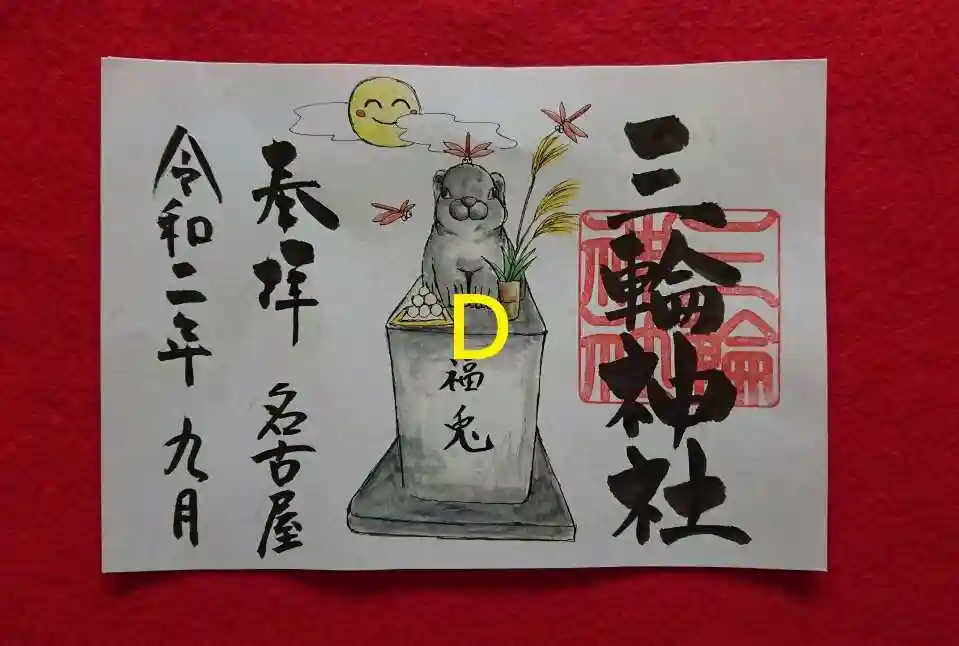 三輪神社
三輪神社
D
福兎
奉拝 名古屋
令和二年 九月